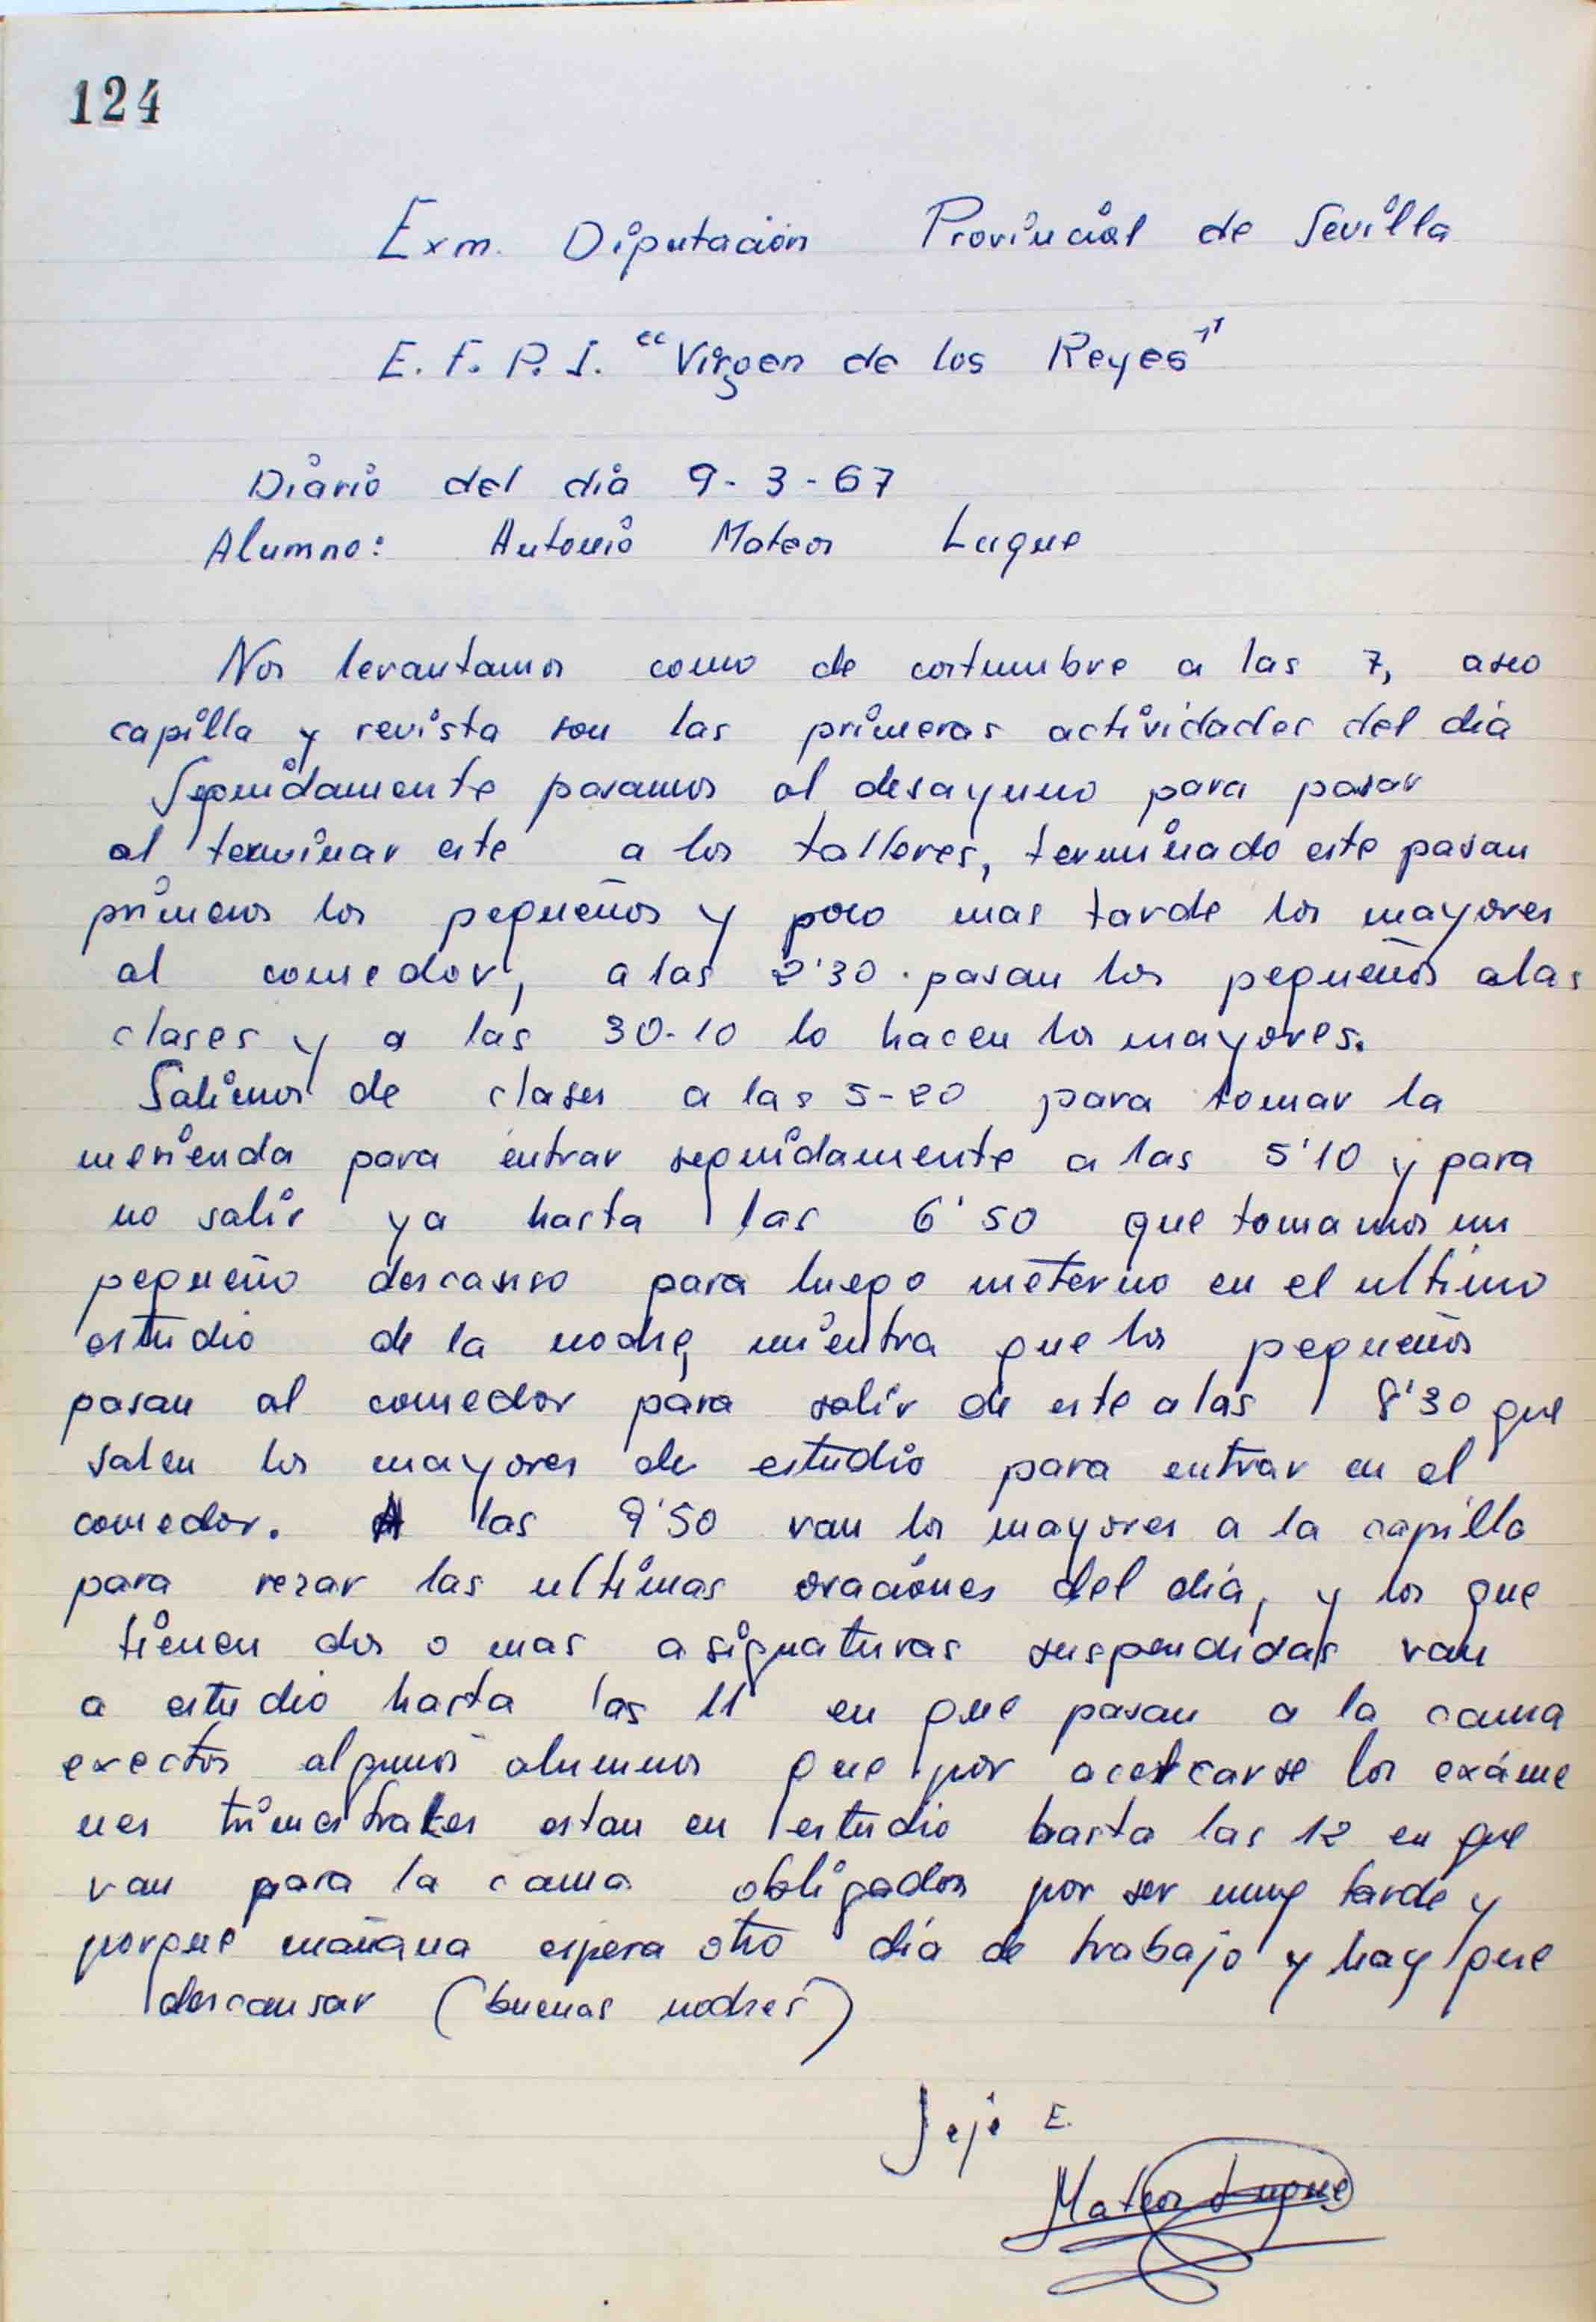 124
Exm. Diputación Provincial de Sevilla
E. F. P. I. "Virgen de los Reyes"
Diario del dia 9-3-67
Alumno: Antonio Mateos Luque
Nos levantamos como de costumbre a las 7, aseo
capilla y revista son las primeras actividades del día
Seguidamente pasamos al desayuno para pasar
al terminar este a los talleres, terminado este pasan
primeros los pequeños y poco mas tarde los mayores
al comedor, a las 2'30 . pasan los pequeños a las
clases y a las 30-10 lo hacen los mayores.
Salimos de clases a las 5-20 para tomar la
merienda para entrar seguidamente a las 5'10 y para
no salir ya hasta las 6'50 que tomamos un
pequeño descanso para luego meterno en el ultimo
estudio de la noche, mientra que los pequeños
pasan al comedor para salir de este a las 8'30 que
salen los mayores de estudio para entrar en el
comedor. A las 9'50 van los mayores a la capilla
para rezar las ultimas oraciónes del día, y los que
tienen dos o mas asignaturas suspendidas van
a estudio hasta las 11 en que pasan a la cama
exectos algunos alumnos que por acercarse los exáme
nes trimestrales estan en estudio hasta las 12 en que
van para la cama obligados por ser muy tarde y
porque mañana espera otro día de trabajo y hay que
descansar (buenas noches)
Jeje E.
Mateos Luque